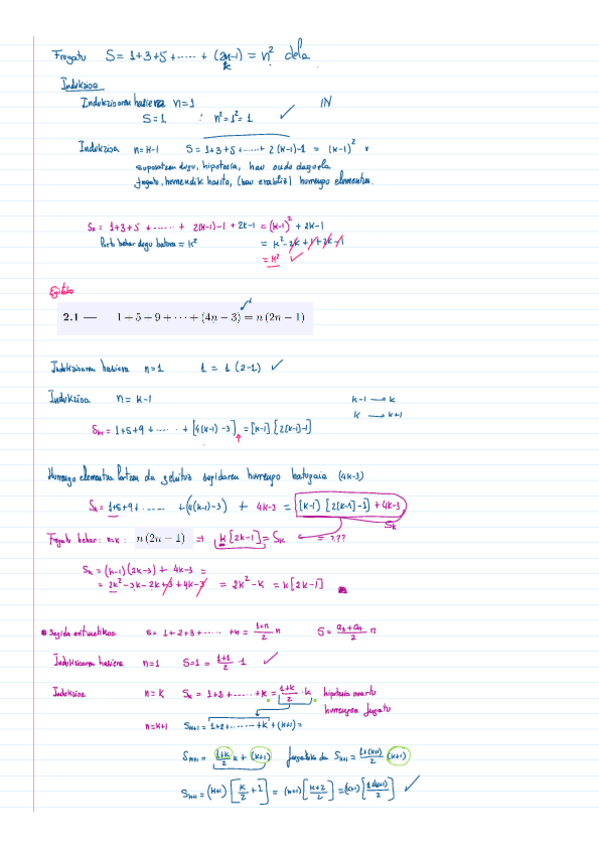 Frogatu S = 1+3+5+.....+(2k-1) = n² dela
Indukzioa
Indukzioaren hasiera n=1 IN
S=1 n²=1²=1 ✓
Indukzioa n=k-1 S=1+3+5+.....+2(k-1)-1 = (k-1)²
suposatzen dugu, hipotesia, hau ondo dagoela
frogatu, hemendik hasita, (hau erabiliz) hurrengo elementua.
Sk = 1+3+5+......+ 2(k-1)-1 + 2k-1 = (k-1)² + 2k-1
Lortu behar dugu batura = k² = k²-2k+1+2k-1
= k² ✓
Egiteko
2.1 — 1+5+9+···+(4n−3) = n(2n−1)
Indukzioaren hasiera n=1 1 = 1(2-1) ✓
Indukzioa n=k-1 k-1 → k
k → k+1
Sk-1 = 1+5+9+.....+[4(k-1)-3] = [k-1][2(k-1)-1]
Hurrengo elementua lortzen da segidaren hurrengo batugaia (4k-3)
Sk = 1+5+9+......+(4(k-1)-3) + 4k-3 = [k-1][2(k-1)-1]+4k-3
Sk
Frogatu behar: n=k: n(2n−1) ⇒ k[2k-1] = Sk = ???
Sk = (k-1)(2k-3) + 4k-3 =
= 2k²-3k-2k+3+4k-3 = 2k²-k = k[2k-1]
Segida aritmetikoa S = 1+2+3+.....+n = (1+n)/2 n S = (a1+an)/2 n
Indukzioaren hasiera n=1 S=1 = (1+1)/2 · 1 ✓
Indukzioa n=k Sk = 1+2+.....+k = (1+k)/2 · k hipotesia onartu
hurrengoa frogatu
n=k+1 Sk+1 = 1+2+.......+k+(k+1) =
Sk+1 = (1+k)/2 k + (k+1) frogatuko da Sk+1 = (1+(k+1))/2 (k+1)
Sk+1 = (k+1)[k/2 + 1] = (k+1)[(k+2)/2] = (k+1)[(1+(k+1))/2] ✓